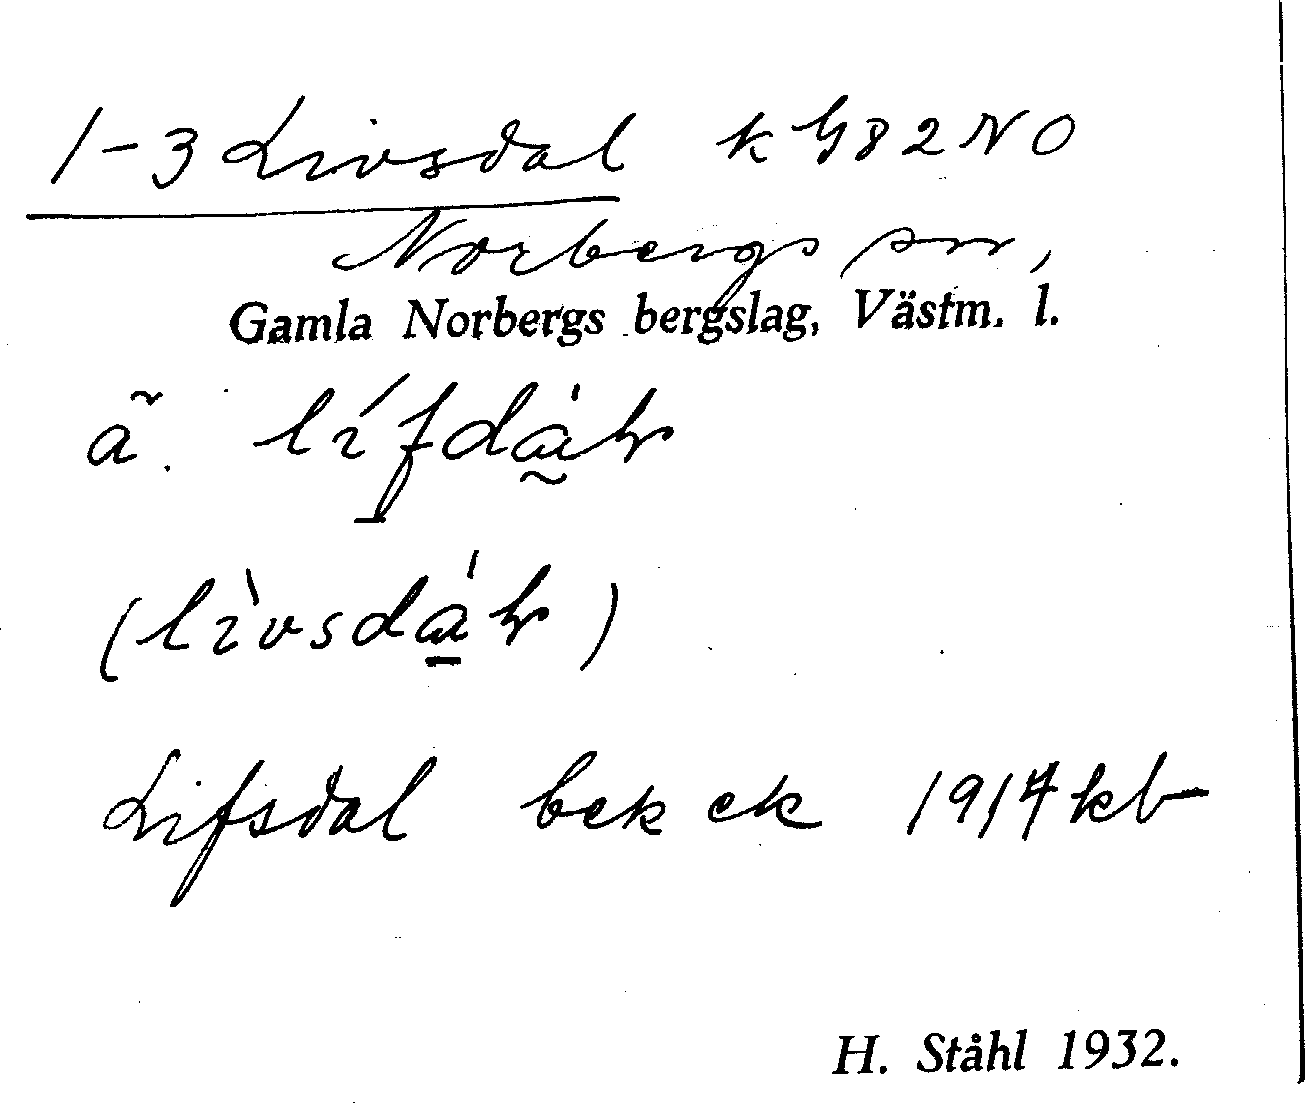 1-3 Livsdal k G82 NO
Norbergs sn,
Gamla Norbergs bergslag, Västm. l.
ã. lífdàl
(lìvsdál)
Lifsdal bek ek 1917 kb
H. Ståhl 1932.